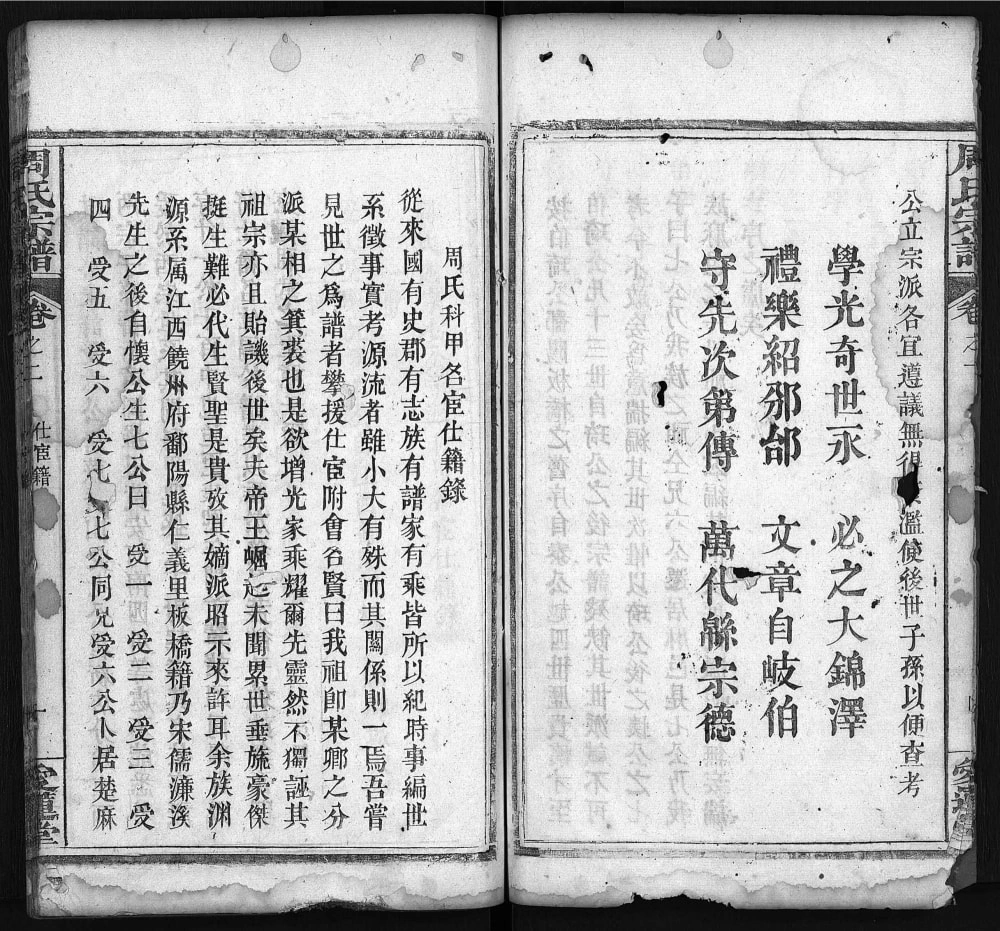 公立宗派各宜遵議無得濫使後世子孫以便查考
學光奇世永　必之大錦澤
禮樂紹邠邰　文章自岐伯
守先次第傳　萬代緜宗德
周氏科甲各宦仕籍錄
從來國有史郡有志族有譜家有乘皆所以紀時事編世
系徵事實考源流者雖小大有殊而其關係則一焉吾嘗
見世之為譜者攀援仕宦附會名賢曰我祖卽某鄉之分
派某相之箕裘也是欲增光家乘耀爾先靈然不獨誣其
祖宗亦且貽譏後世矣夫帝王崛起未聞累世垂旒豪傑
挺生難必代生賢聖是貴攷其嫡派昭示來許耳余族淵
源系属江西饒州府鄱陽縣仁義里板橋籍乃宋儒濂溪
先生之後自懷公生七公曰　受一　受二　受三　受
四　受五　受六　受七　七公同兄受六公卜居楚麻
周氏宗譜　卷之二　仕宦籍　十　愛蓮堂